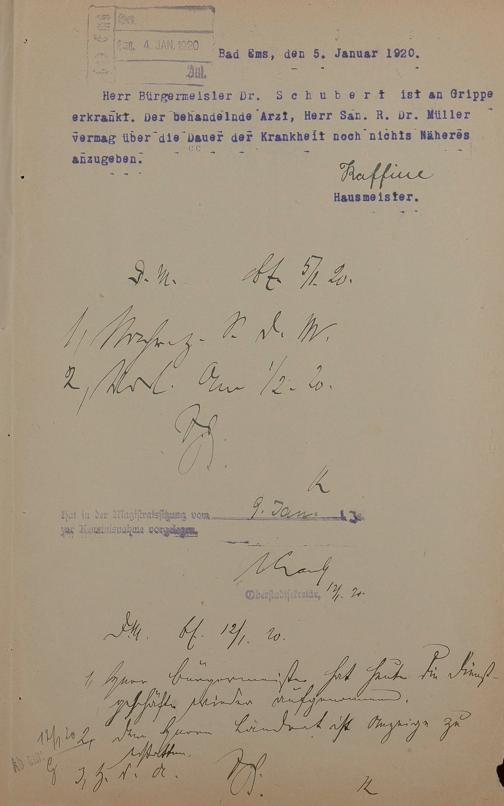 4. JAN. 1920
Bad Ems, den 5. Januar 1920.
Herr Bürgermeister Dr. Schubert ist an Grippe
erkrankt. Der behandelnde Arzt, Herr San. R. Dr. Müller
vermag über die Dauer der Krankheit noch nichts Näheres
anzugeben.
Kaffine
Hausmeister.
D. M. 5/1. 20.
1, z. d. M.
2, Am 1/2. 20.
K
Hat in der Magistratssitzung vom 9. Jan.
zur Kenntnisnahme vorgelegen.
Oberstadtsekretär, 12/1. 20.
D.M. 12/1. 20.
1, Herr Bürgermeister hat heute die Dienst-
geschäfte wieder aufgenommen.
12/1 20 2, dem Herrn Landrat ist Anzeige zu
erstatten.
3, z. d. A.
K